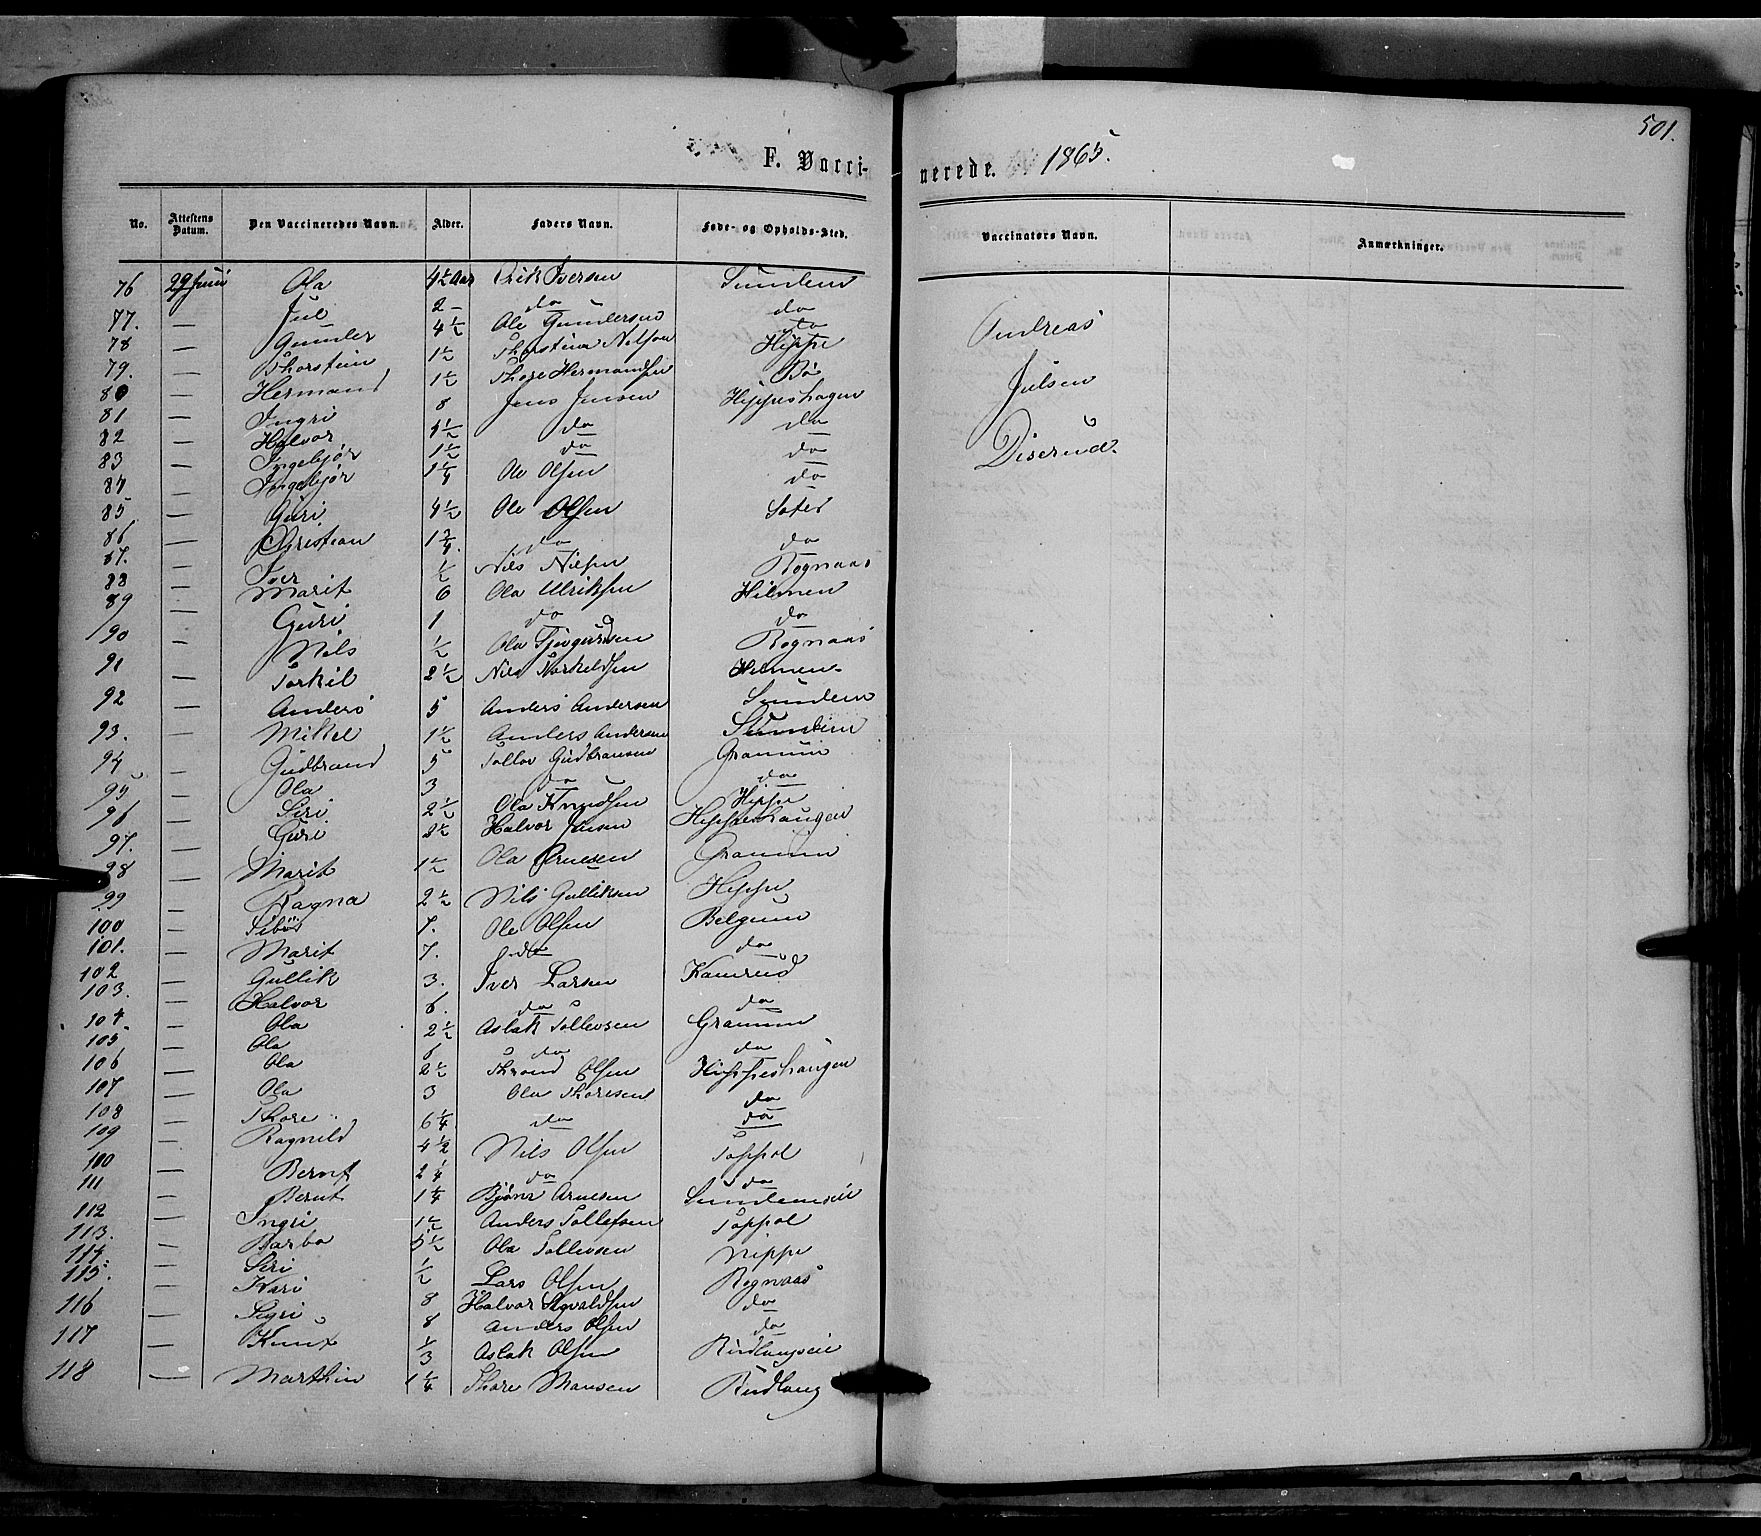 501.
F. Vacci-
nerede. 1865.
No. Attestens Datum. Den Vaccineredes Navn. Alder. Faders Navn. Føde- og Opholds-Sted. Vaccinators Navn. Anmærkninger.
76 29 Juni Ola 4½ Aar Erik Iversen Sundem
77. — Jul 2 — do do
78 — Gunder 4½ Ole Gundersen do
79. — Thorstein 1½ Thorstein Nilsen Hippe
80 — Hermand 1½ Thore Hermandsen Bø
81 — Ingri 8 Jens Jensen Hippeshagen
82 — Halvor 4½ do do
83 — Ingebjør 1½ do do
84 — Ingebjør 1¼ Ole Olsen do
85 — Guri 4½ Ole Olsen Sater
86 — Christian 1¾ do do
87. — Iver ½ Nils Nilsen Rognaas
88 — Marit 6 Ola Ulriksen Hilmen
89 — Guri 1 do do
90 — Nils ½ Ola Rognaas
91 — Torkil 2½ Nils Torkeldsen Hilmen
92 — Anders 5 Anders Andersen Sundem
93. — Mikkel 1½ Anders Andersen Sundem
94 — Gudbrand 5 Tollov Gudbransen
95 — Ola 3 do do
96 — Siri 2½ Ola Knudsen Hippe
97. — Guri 2½ Halvor Jensen Hippeshaugen
98 — Marit 1½ Ola Arnesen
99 — Ragna 2½ Nils Gulliksen Hippe
100 — 7. Ole Olsen Belgum
101. — Marit 7. do do
102 — Gullik 3. Iver Larsen Kamrud
103. — Halvor 6. do do
104. — Ola 2½ Aslak Tollevsen
105 — Ola 6 do do
106 — Ola 2½ Thrond Olsen Hippeshaugen
107 — Ola 3 Ola Thoresen do
108 — Thore 6¼ do do
109 — Ragnild 4½ Nils Olsen Toppol
110 — Bernt 2¼ do do
111 — Bernt 1¼ Bjønr Arnesen Sundemseie
112 — Ingri 1½ Anders Tollefsen Toppol
113. — Barbo 5½ Ola Tollevsen Hippe
114. — Siri ½ Lars Olsen Rognaas
115. — Kari 8 Halvor Sigvaldsen do
116 — Sigri 8 Anders Olsen do
117 — Knut ⅓ Aslak Olsen Rudlangseie
118 — Marthin 1¼ Thore Mansen Rudlang
Andreas
Julsen
Diserud.